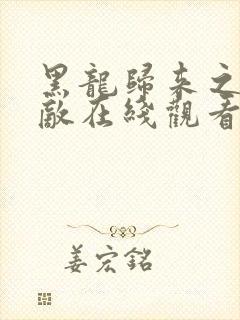 黑龍歸來之
敵在綫觀看
姜宏銘